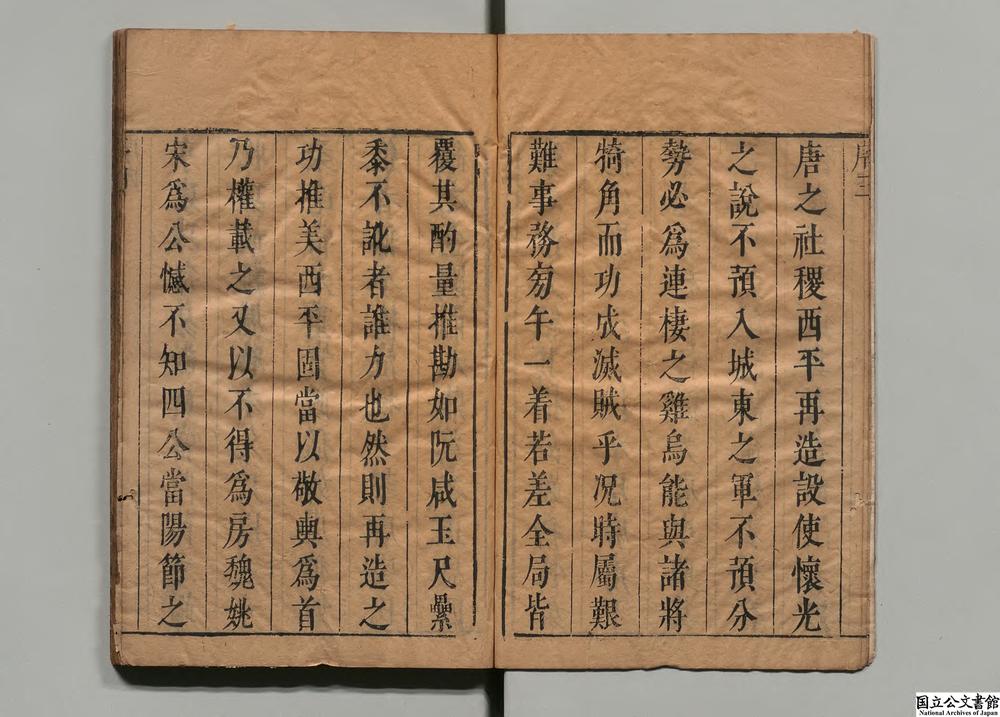 唐之社稷西平再造設使懷光
之說不預入城東之軍不預分
勢必為連棲之雞烏能與諸將
犄角而功成滅賊乎况時屬艱
難事務旁午一着若差全局皆
覆其酌量推勘如阮咸玉尺纍
黍不訛者誰力也然則再造之
功推美西平固當以敬輿為首
乃權載之又以不得為房魏姚
宋為公憾不知四公當陽節之
国立公文書館
National Archives of Japan